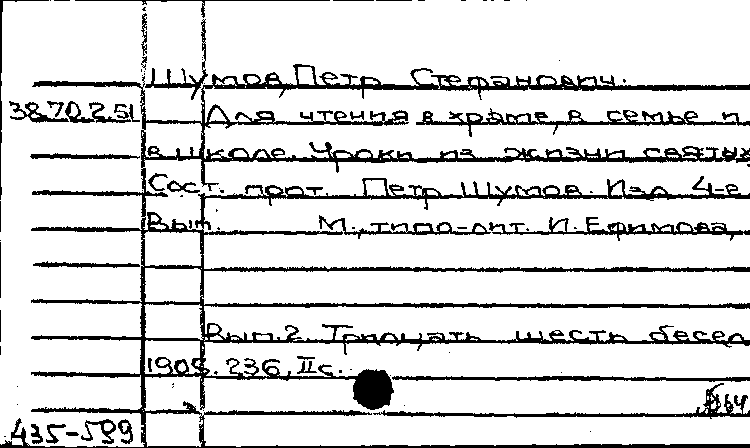 Шумов, Петр Стефанович.
38.70.2.51 Для чтения в храме, в семье и
в школе. Уроки из жизни святых
Сост. прот. Петр Шумов. Изд. 4-е
Вып. М., типо-лит. И. Ефимова,
Вып. 2. Тридцать шесть бесед
1908. 236, II с.
435-599